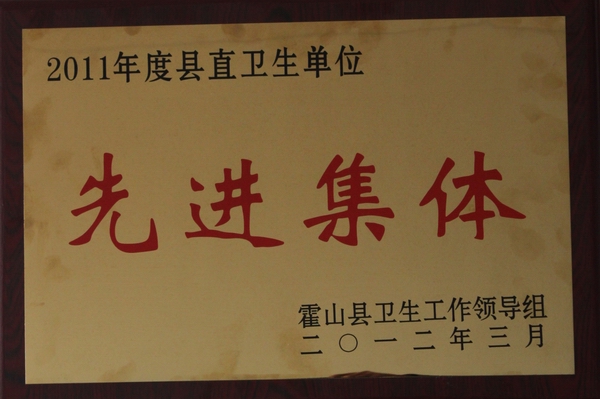 2011年度县直卫生单位
先进集体
霍山县卫生工作领导组
二〇一二年三月